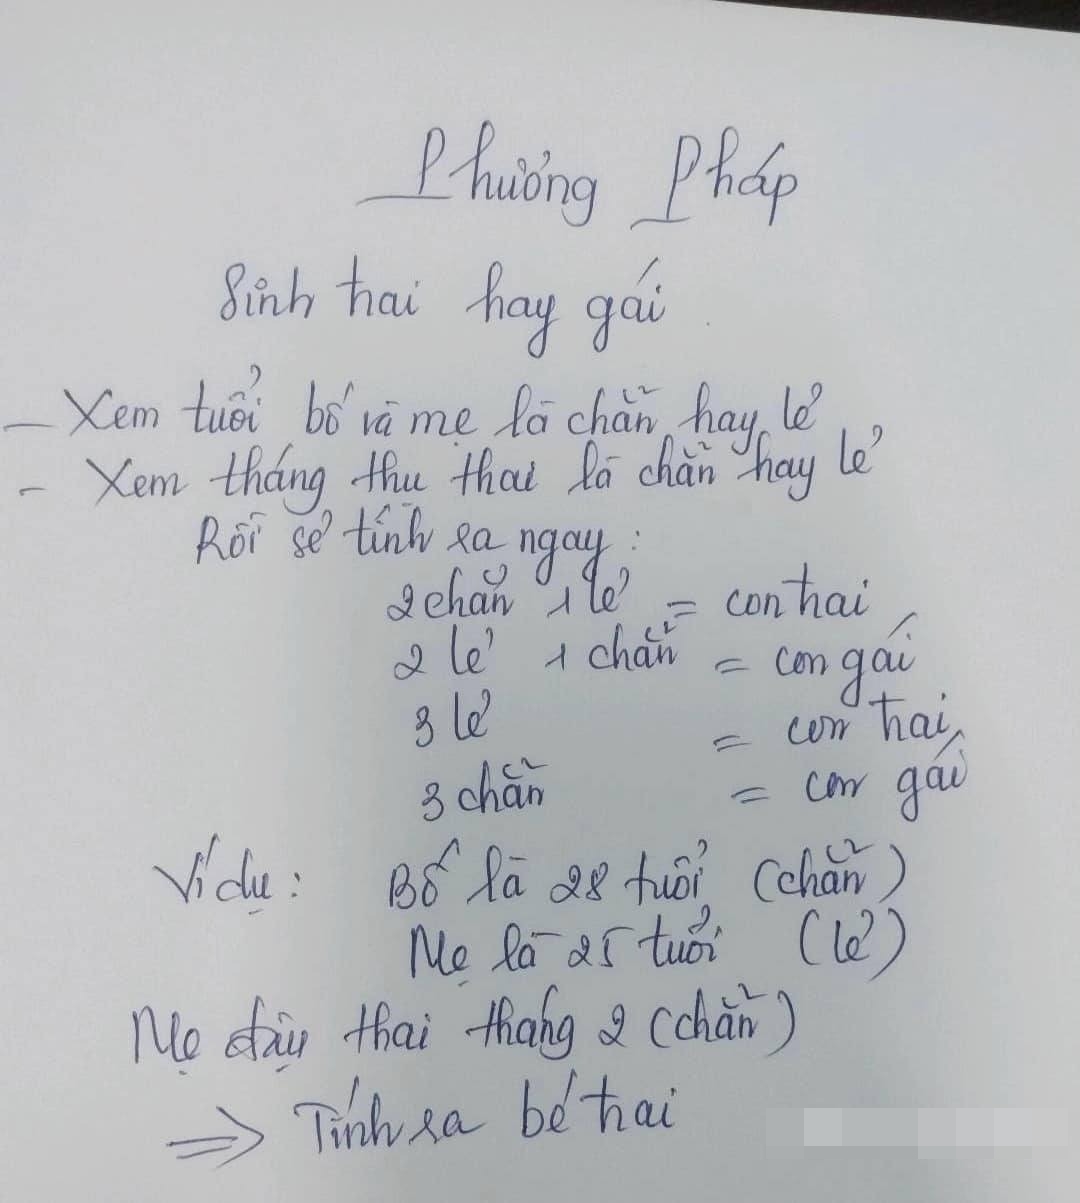 Phương Pháp
Sinh trai hay gái.
- Xem tuổi bố và mẹ là chẵn hay lẻ
- Xem tháng thụ thai là chẵn hay lẻ
Rồi sẽ tính ra ngay:
2 chẵn 1 lẻ = con trai
2 lẻ 1 chẵn = con gái
3 lẻ = con trai
3 chẵn = con gái
Ví dụ: Bố là 28 tuổi (chẵn)
Mẹ là 25 tuổi (lẻ)
Mẹ đậu thai tháng 2 (chẵn)
=> Tính ra bé trai